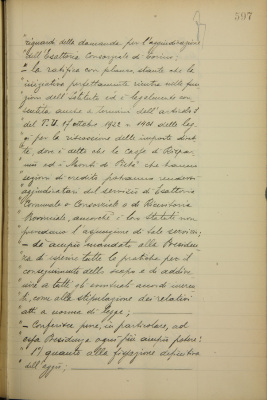 597
riguardo della domanda per l'aggiudicazione
dell'Esattoria Consorziale di Torino;
- la ratifica con plauso, stante che la
iniziativa perfettamente rientra nelle fun-
zioni dell'Istituto ed è legalmente con-
sentita anche a termini dell'articolo
del T. U. 17 ottobre 1922 n 1401 delle leg.
gi per la riscossione delle imposte diret-
te, dove è detto che le Casse di Rispar.
mio ed i Monti di Pietà che hanno
sezioni di credito potranno rendersi
aggiudicatari del servizio di Esattorie
Comunali o Consorziali e di Ricevitorie
Provinciali, ancorchè i loro Statuti non
prevedano l'assunzione di tale servizio;
- dà ampio mandato alla Presiden-
za di esperire tutte le pratiche per il
conseguimento dello scopo e di addive-
nire a tutti gli eventuali accordi ineren-
ti, come alla stipulazione dei relativi
atti a norma di legge;
- Conferisce pure, in particolare, ad
essa Presidenza ogni più ampio potere:
1°) quanto alla fissazione definitiva
dell'aggio;